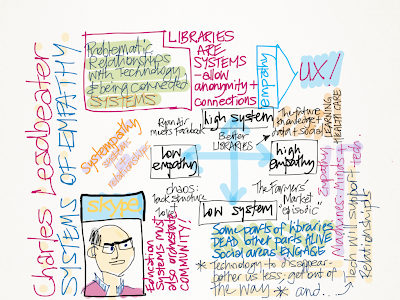 Charles Leadbeater
SYSTEMS OF EMPATHY
Problematic
Relationships
with Technology
& being connected
SYSTEMS
LIBRARIES
ARE
SYSTEMS
-allow
anonymity +
connections
empathy
UX!
Systempathy
systems
relationships
Ryan Air
meets Facebook
high system
Better
LIBRARIES
The future
knowledge +
data + social
LEARNING
HEALTH CARE
low
empathy
high
empathy
chaos:
lack structure
low system
The Farmers'
Market
"episodic"
skype
Education
Systems must
also orchestrate
COMMUNITY!
Some parts of libraries
DEAD other parts ALIVE
Social areas ENGAGE
*Technology to disappear-
bother us less - get out of
the way * and...
Empathy
Machines-Minds-
Tech will support
relationships